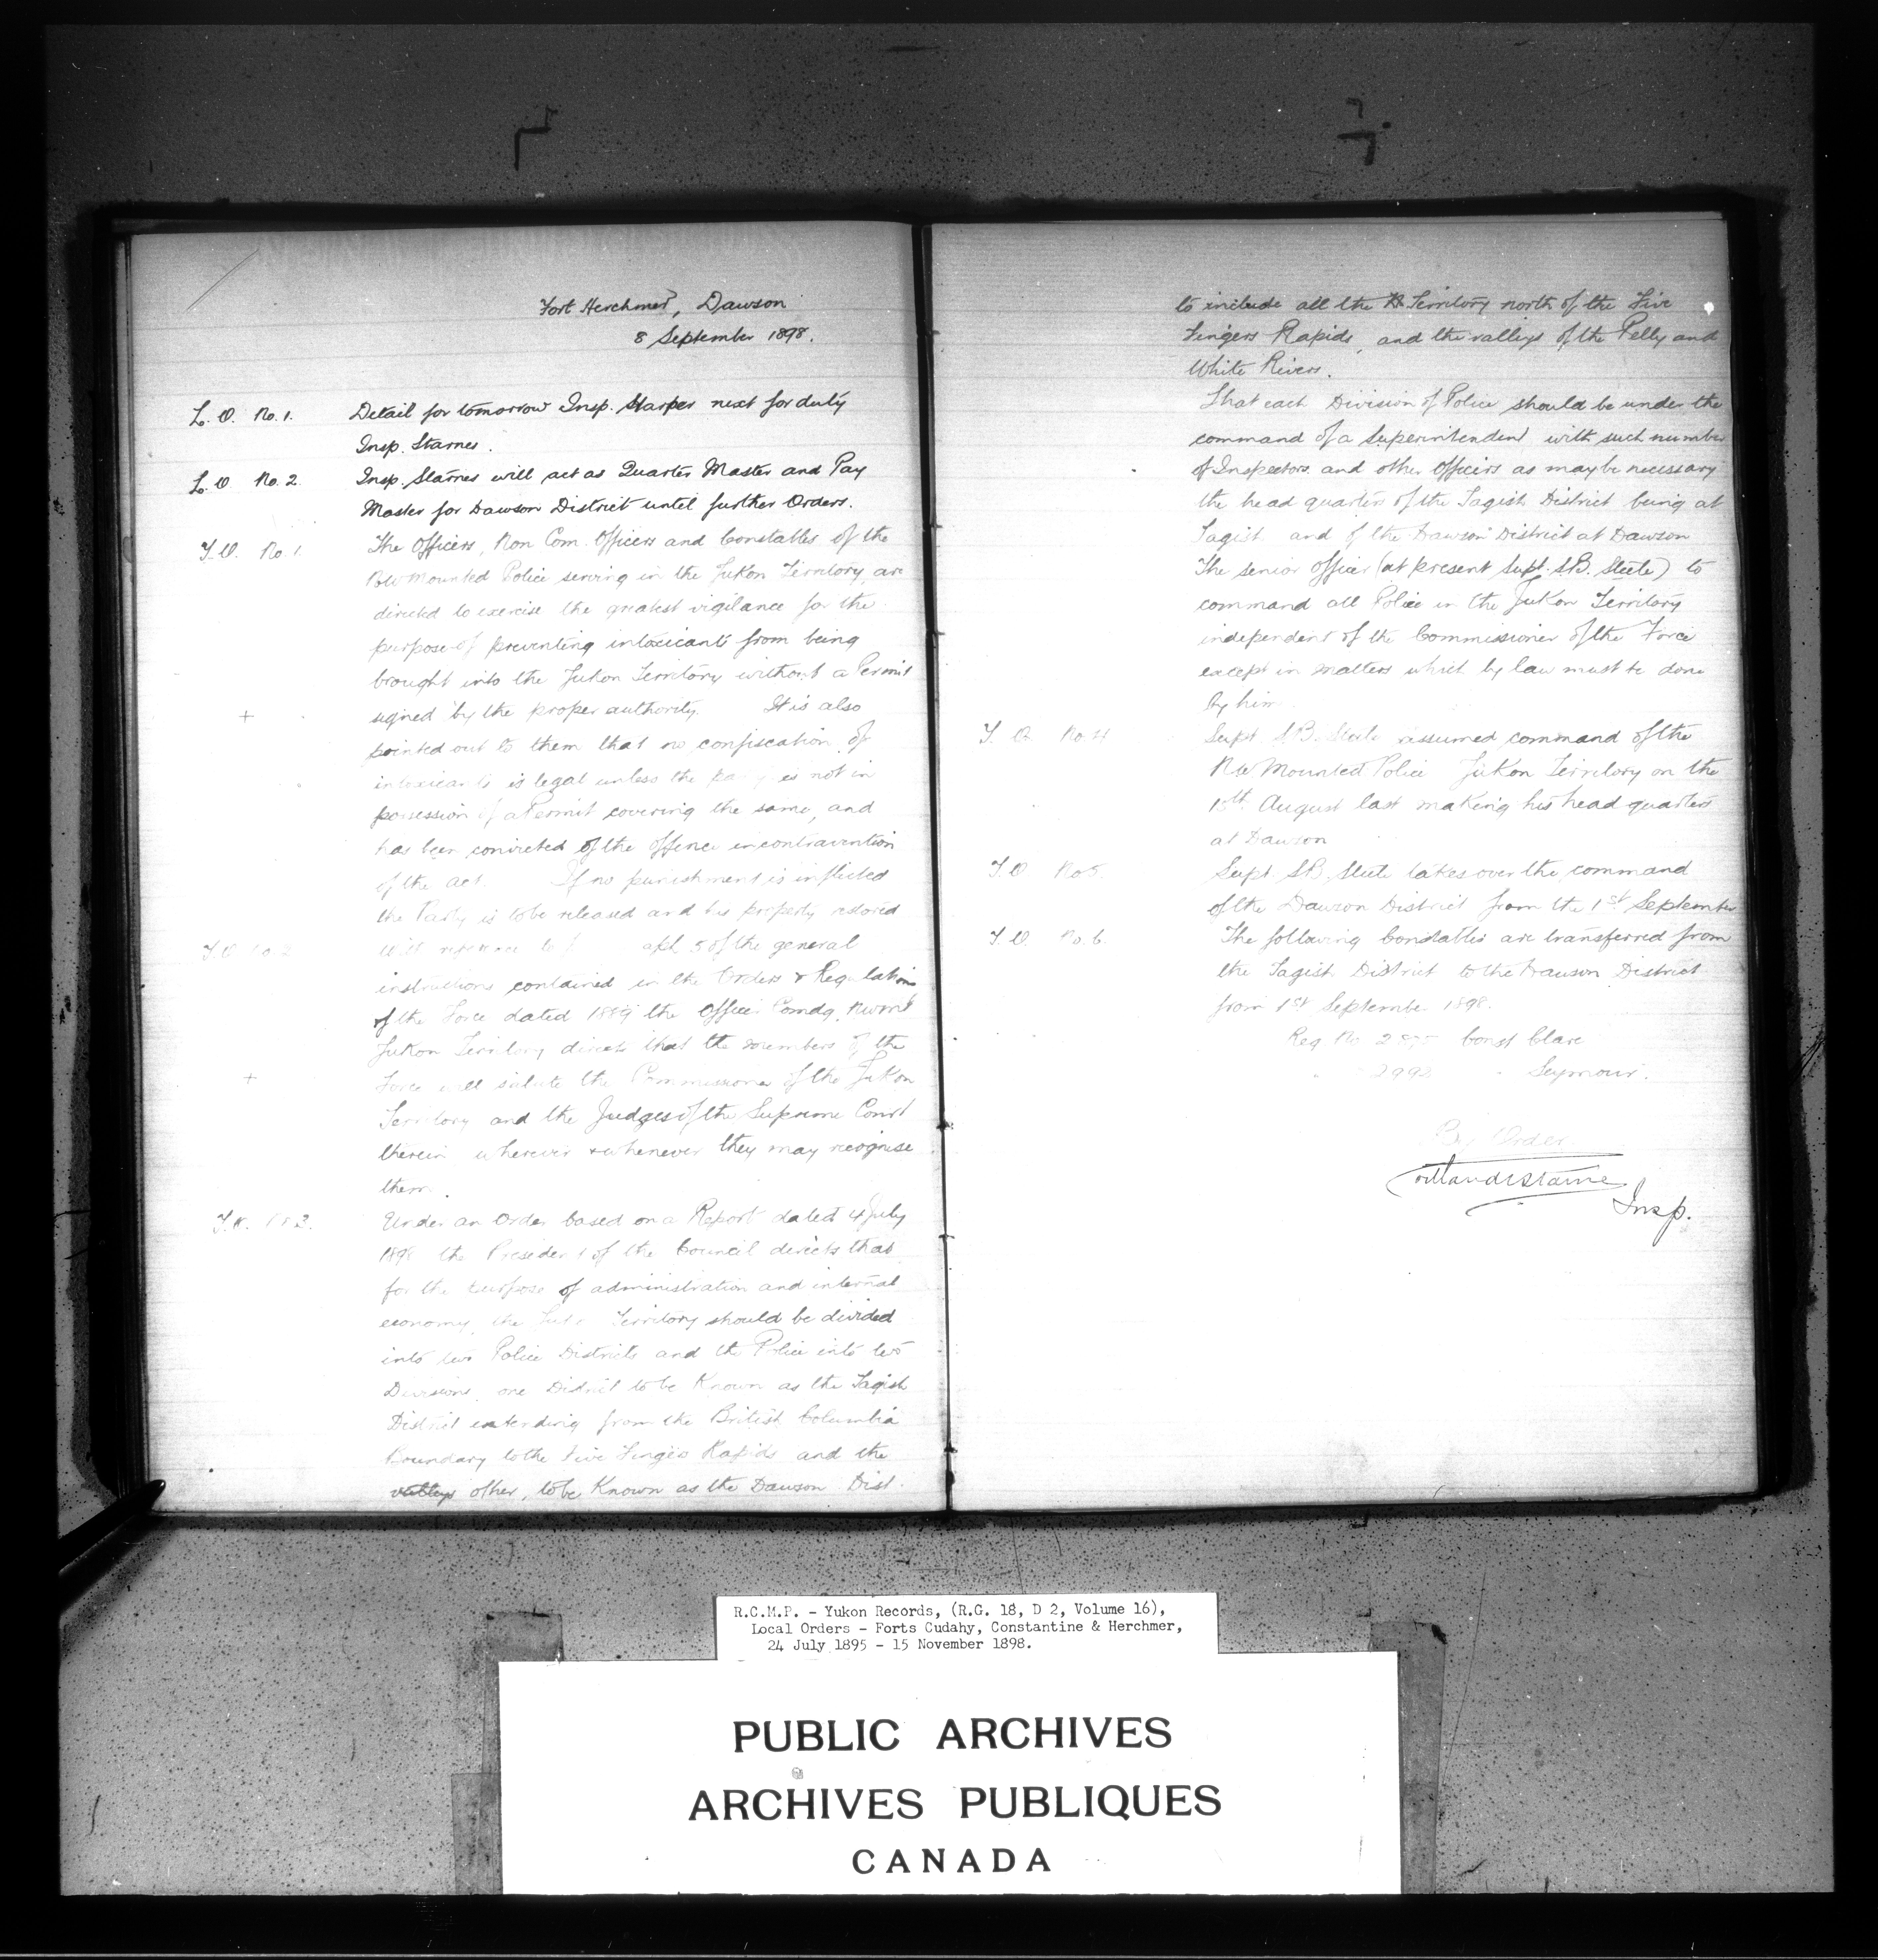 Fort Herchmer, Dawson
8 September 1898.
L. O. No. 1. Detail for tomorrow Insp. Harper next for duty
Insp. Starnes.
L. O. No. 2. Insp. Starnes will act as Quarter Master and Pay
Master for Dawson District until further Orders.
Y. O. No. 1. The Officers, Non Com. Officers and Constables of the
NW Mounted Police serving in the Yukon Territory, are
directed to exercise the greatest vigilance for the
purpose of preventing intoxicants from being
brought into the Yukon Territory without a Permit
+ signed by the proper authority. It is also
pointed out to them that no confiscation of
intoxicants is legal unless the party is not in
possession of a Permit covering the same, and
has been convicted of the offence in contravention
of the act. If no punishment is inflicted
the Party is to be released and his property restored
Y. O. No 2 With reference to 5 of the general
instructions contained in the Orders & Regulations
of the Force dated 1889 the Officer Comdg. NWMP
Yukon Territory directs that the members of the
+ Force will salute the Commissioner of the Yukon
Territory and the Judges of the Supreme Court
therein wherever & whenever they may recognise
them.
Y. O. No 3. Under an Order based on a Report dated 4 July
1898 the President of the Council directs that
for the purpose of administration and internal
economy, the Yukon Territory should be divided
into two Police Districts and the Police into two
Divisions, one District to be Known as the Tagish
District extending from the British Columbia
Boundary to the Five Fingers Rapids and the
valleys other, to be Known as the Dawson Dist.
to include all the Territory north of the Five
Fingers Rapids, and the valleys of the Pelly and
White Rivers.
That each Division of Police should be under the
command of a Superintendent with such number
of Inspectors and other Officers as may be necessary
the head quarters of the Tagish District being at
Tagish and of the Dawson District at Dawson
The senior Officer (at present Supt. S.B. Steele) to
command all Police in the Yukon Territory
independent of the Commissioner of the Force
except in matters which by law must be done
by him
Y. O. No. 4 Supt. S.B. Steele assumed command of the
NW Mounted Police Yukon Territory on the
August last making his head quarters
at Dawson
Y. O. No 5. Supt. S.B. Steele takes over the command
of the Dawson District from the 1st September
Y. O. No. 6. The following Constables are transferred from
the Tagish District to the Dawson District
from 1st September 1898.
Reg No Const Clare
" " Seymour.
By Order
Cortlandt Starnes
Insp.
R.C.M.P. - Yukon Records, (R.G. 18, D 2, Volume 16),
Local Orders - Forts Cudahy, Constantine & Herchmer,
24 July 1895 - 15 November 1898.
PUBLIC ARCHIVES
ARCHIVES PUBLIQUES
CANADA